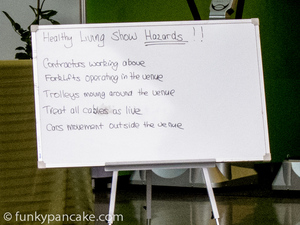 Healthy Living Show Hazards !!
Contractors working above
Forklifts operating in the venue
Trolleys moving around the venue
Treat all cables as live
Cars movement outside the venue
© funkypancake.com